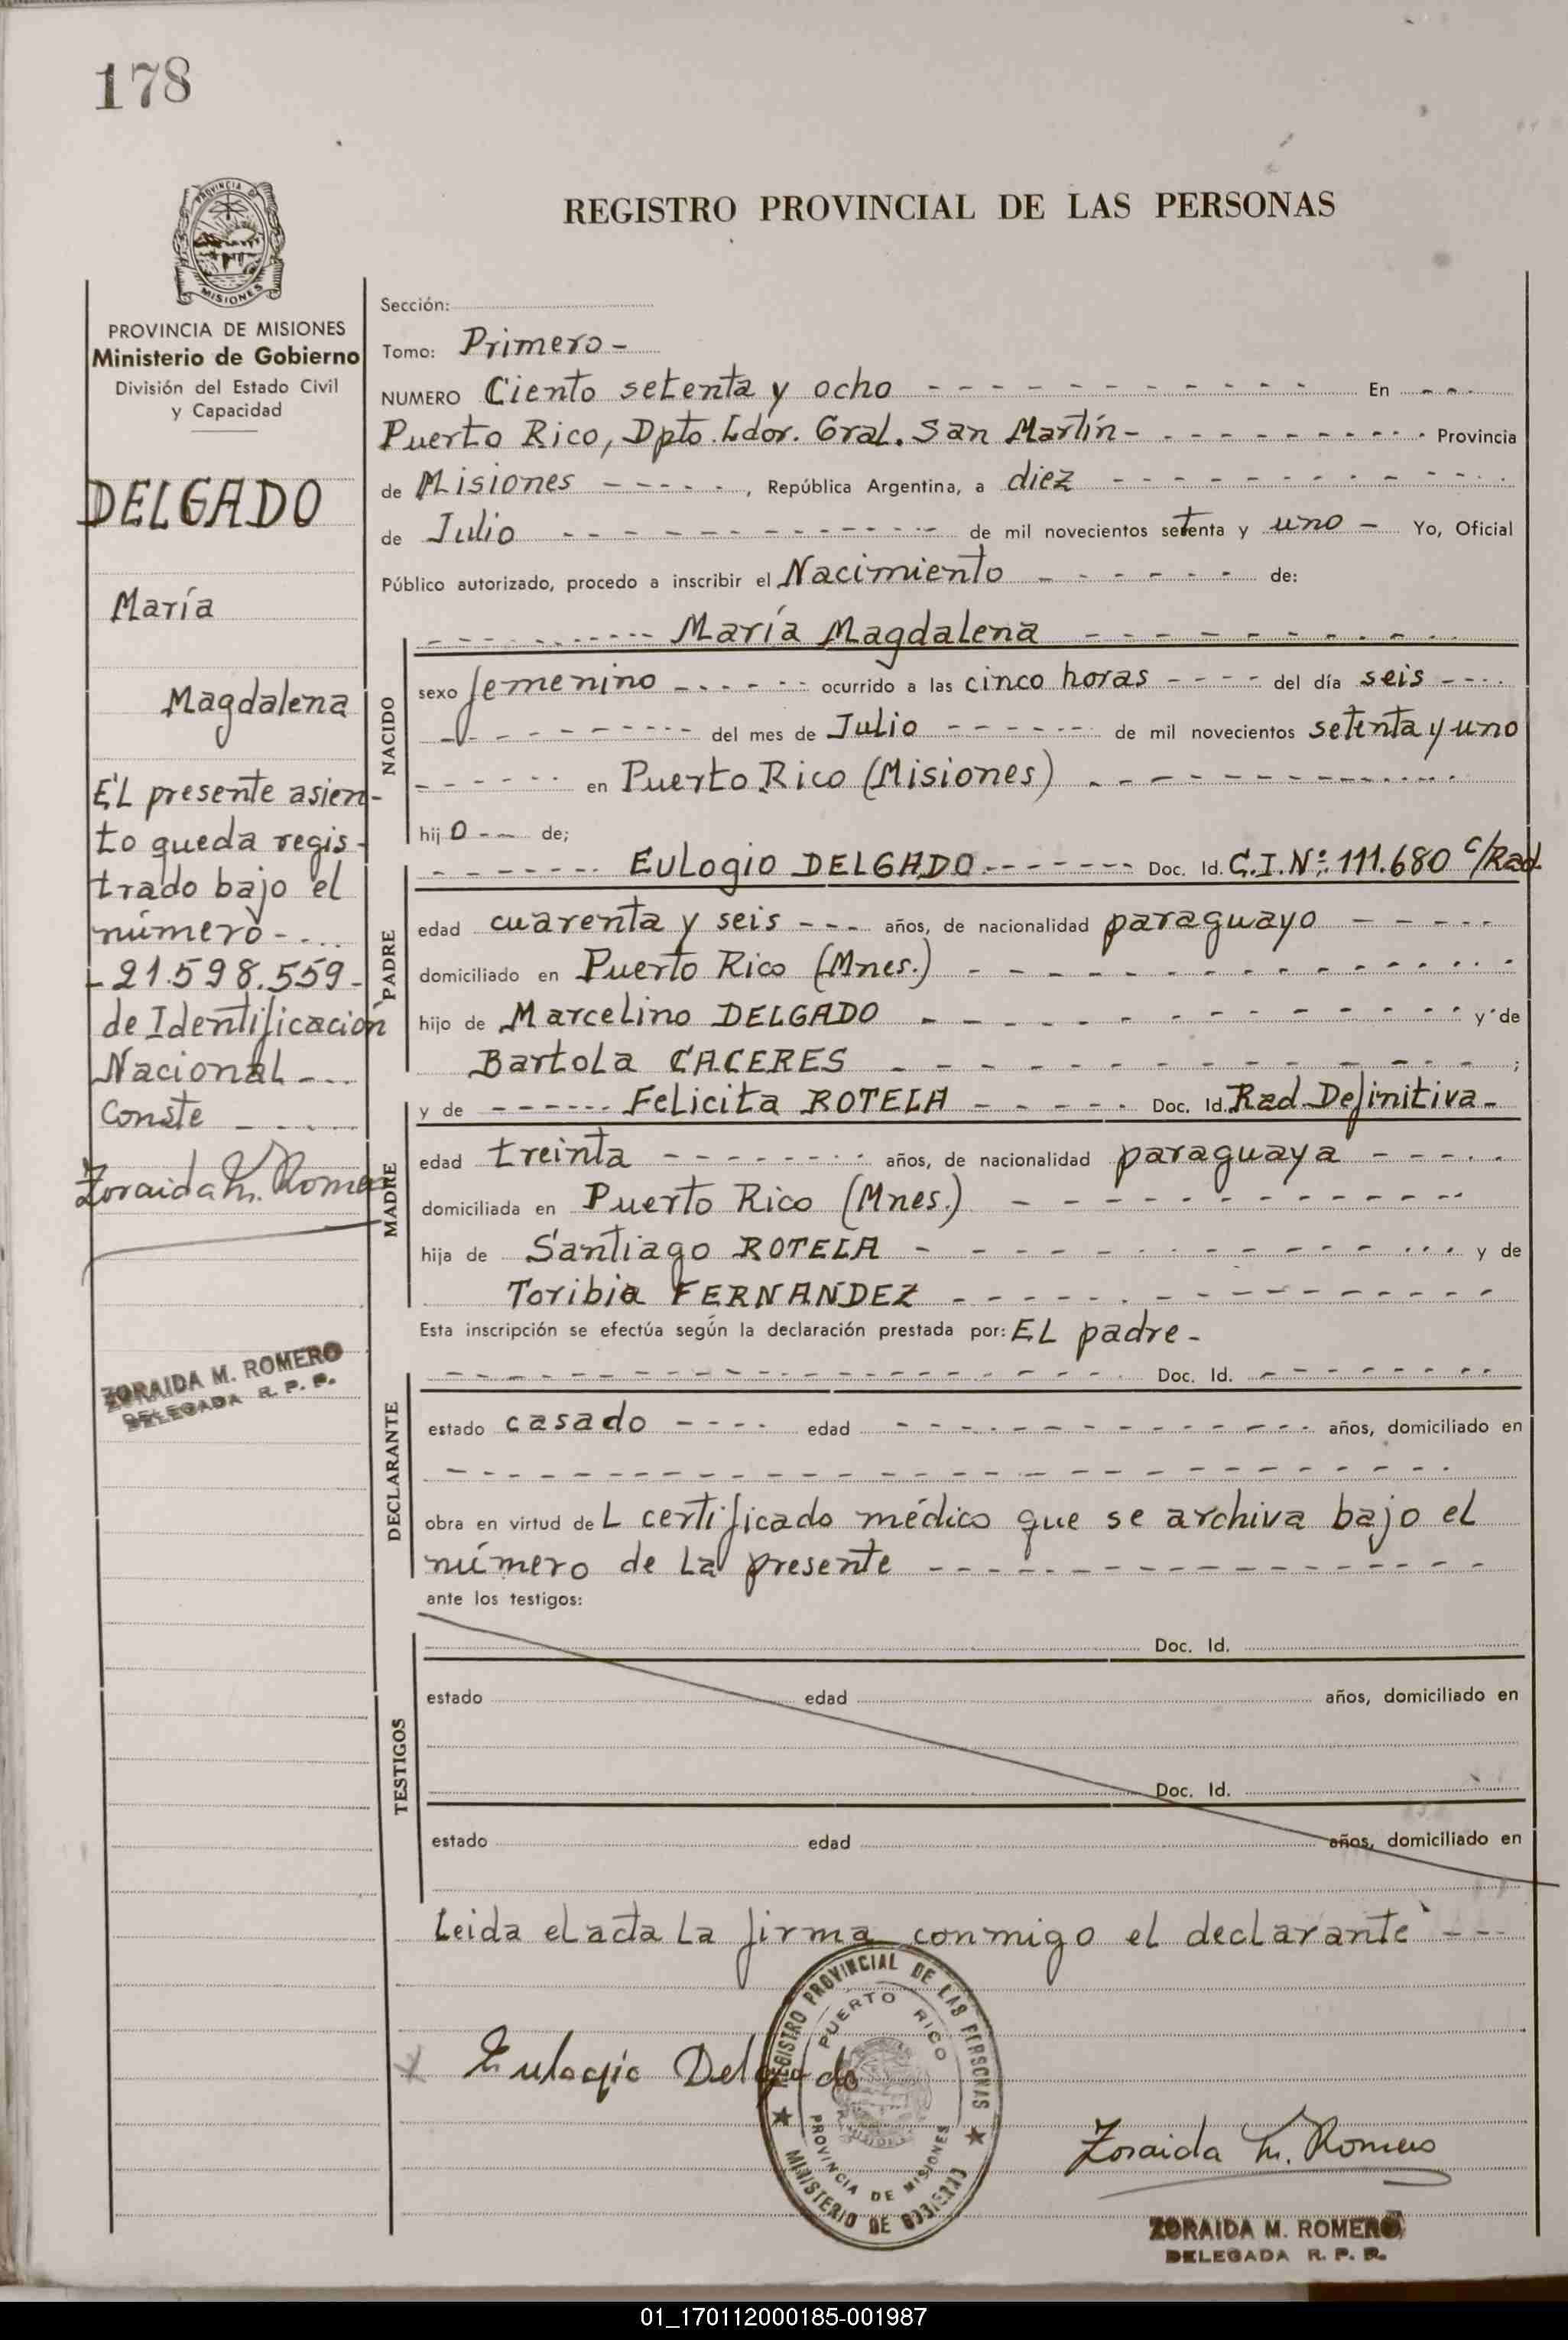 178
REGISTRO PROVINCIAL DE LAS PERSONAS
PROVINCIA DE MISIONES
PROVINCIA DE MISIONES
Ministerio de Gobierno
División del Estado Civil
y Capacidad
DELGADO
María
Magdalena
El presente asien-
to queda regis-
trado bajo el
número - ...
- 21.598.559 -
de Identificación
Nacional - ...
Conste - ....
Zoraida M. Romero
ZORAIDA M. ROMERO
DELEGADA R. P. P.
Sección:
Tomo: Primero -
NUMERO Ciento setenta y ocho - - - - - - - - - - - - En - - -
Puerto Rico, Dpto. Ldor. Gral. San Martín - - - - - - - - - - Provincia
de Misiones - - - - -, República Argentina, a diez - - - - - - - - - -
de Julio - - - - - - - - - - - - de mil novecientos setenta y uno - Yo, Oficial
Público autorizado, procedo a inscribir el Nacimiento - - - - - - - de:
NACIDO
- - - - - - - - - María Magdalena - - - - - - - - - -
sexo femenino - - - - - - ocurrido a las cinco horas - - - - del día seis - - - -
- - - - - - - - - del mes de Julio - - - - - - - de mil novecientos setenta y uno
- - - - - - en Puerto Rico (Misiones) - - - - - - - - - - - -
hij o - - de;
PADRE
- - - - - - - Eulogio DELGADO - - - - - - - Doc. Id. C.I.Nº: 111.680 c/Rad.
edad cuarenta y seis - - - años, de nacionalidad paraguayo - - - - -
domiciliado en Puerto Rico (Mnes.) - - - - - - - - - - - - -
hijo de Marcelino DELGADO - - - - - - - - - - - - y de
Bartola CACERES - - - - - - - - - - - - - - ;
MADRE
y de - - - - - - Felicita ROTELA - - - - - Doc. Id. Rad. Definitiva -
edad treinta - - - - - - - - años, de nacionalidad paraguaya - - - - -
domiciliada en Puerto Rico (Mnes.) - - - - - - - - - - -
hija de Santiago ROTELA - - - - - - - - - - - - - y de
Toribia FERNANDEZ - - - - - - - - - - - - -
Esta inscripción se efectúa según la declaración prestada por: El padre -
DECLARANTE
- - - - - - - - - - - - - - - - - - - - Doc. Id. - - - - - - - -
estado casado - - - - edad - - - - - - - - - - - - - años, domiciliado en
- - - - - - - - - - - - - - - - - - - - - - - - -
obra en virtud de l certificado médico que se archiva bajo el
número de la presente - - - - - - - - - - - - - - -
ante los testigos:
TESTIGOS
Doc. Id.
estado edad años, domiciliado en
Doc. Id.
estado edad años, domiciliado en
Leida el acta la firma conmigo el declarante - - -
Eulogio Delgado
REGISTRO PROVINCIAL DE LAS PERSONAS
PUERTO RICO
PROVINCIA DE MISIONES
MINISTERIO DE GOBIERNO
Zoraida M. Romero
ZORAIDA M. ROMERO
DELEGADA R. P. P.
01_170112000185-001987